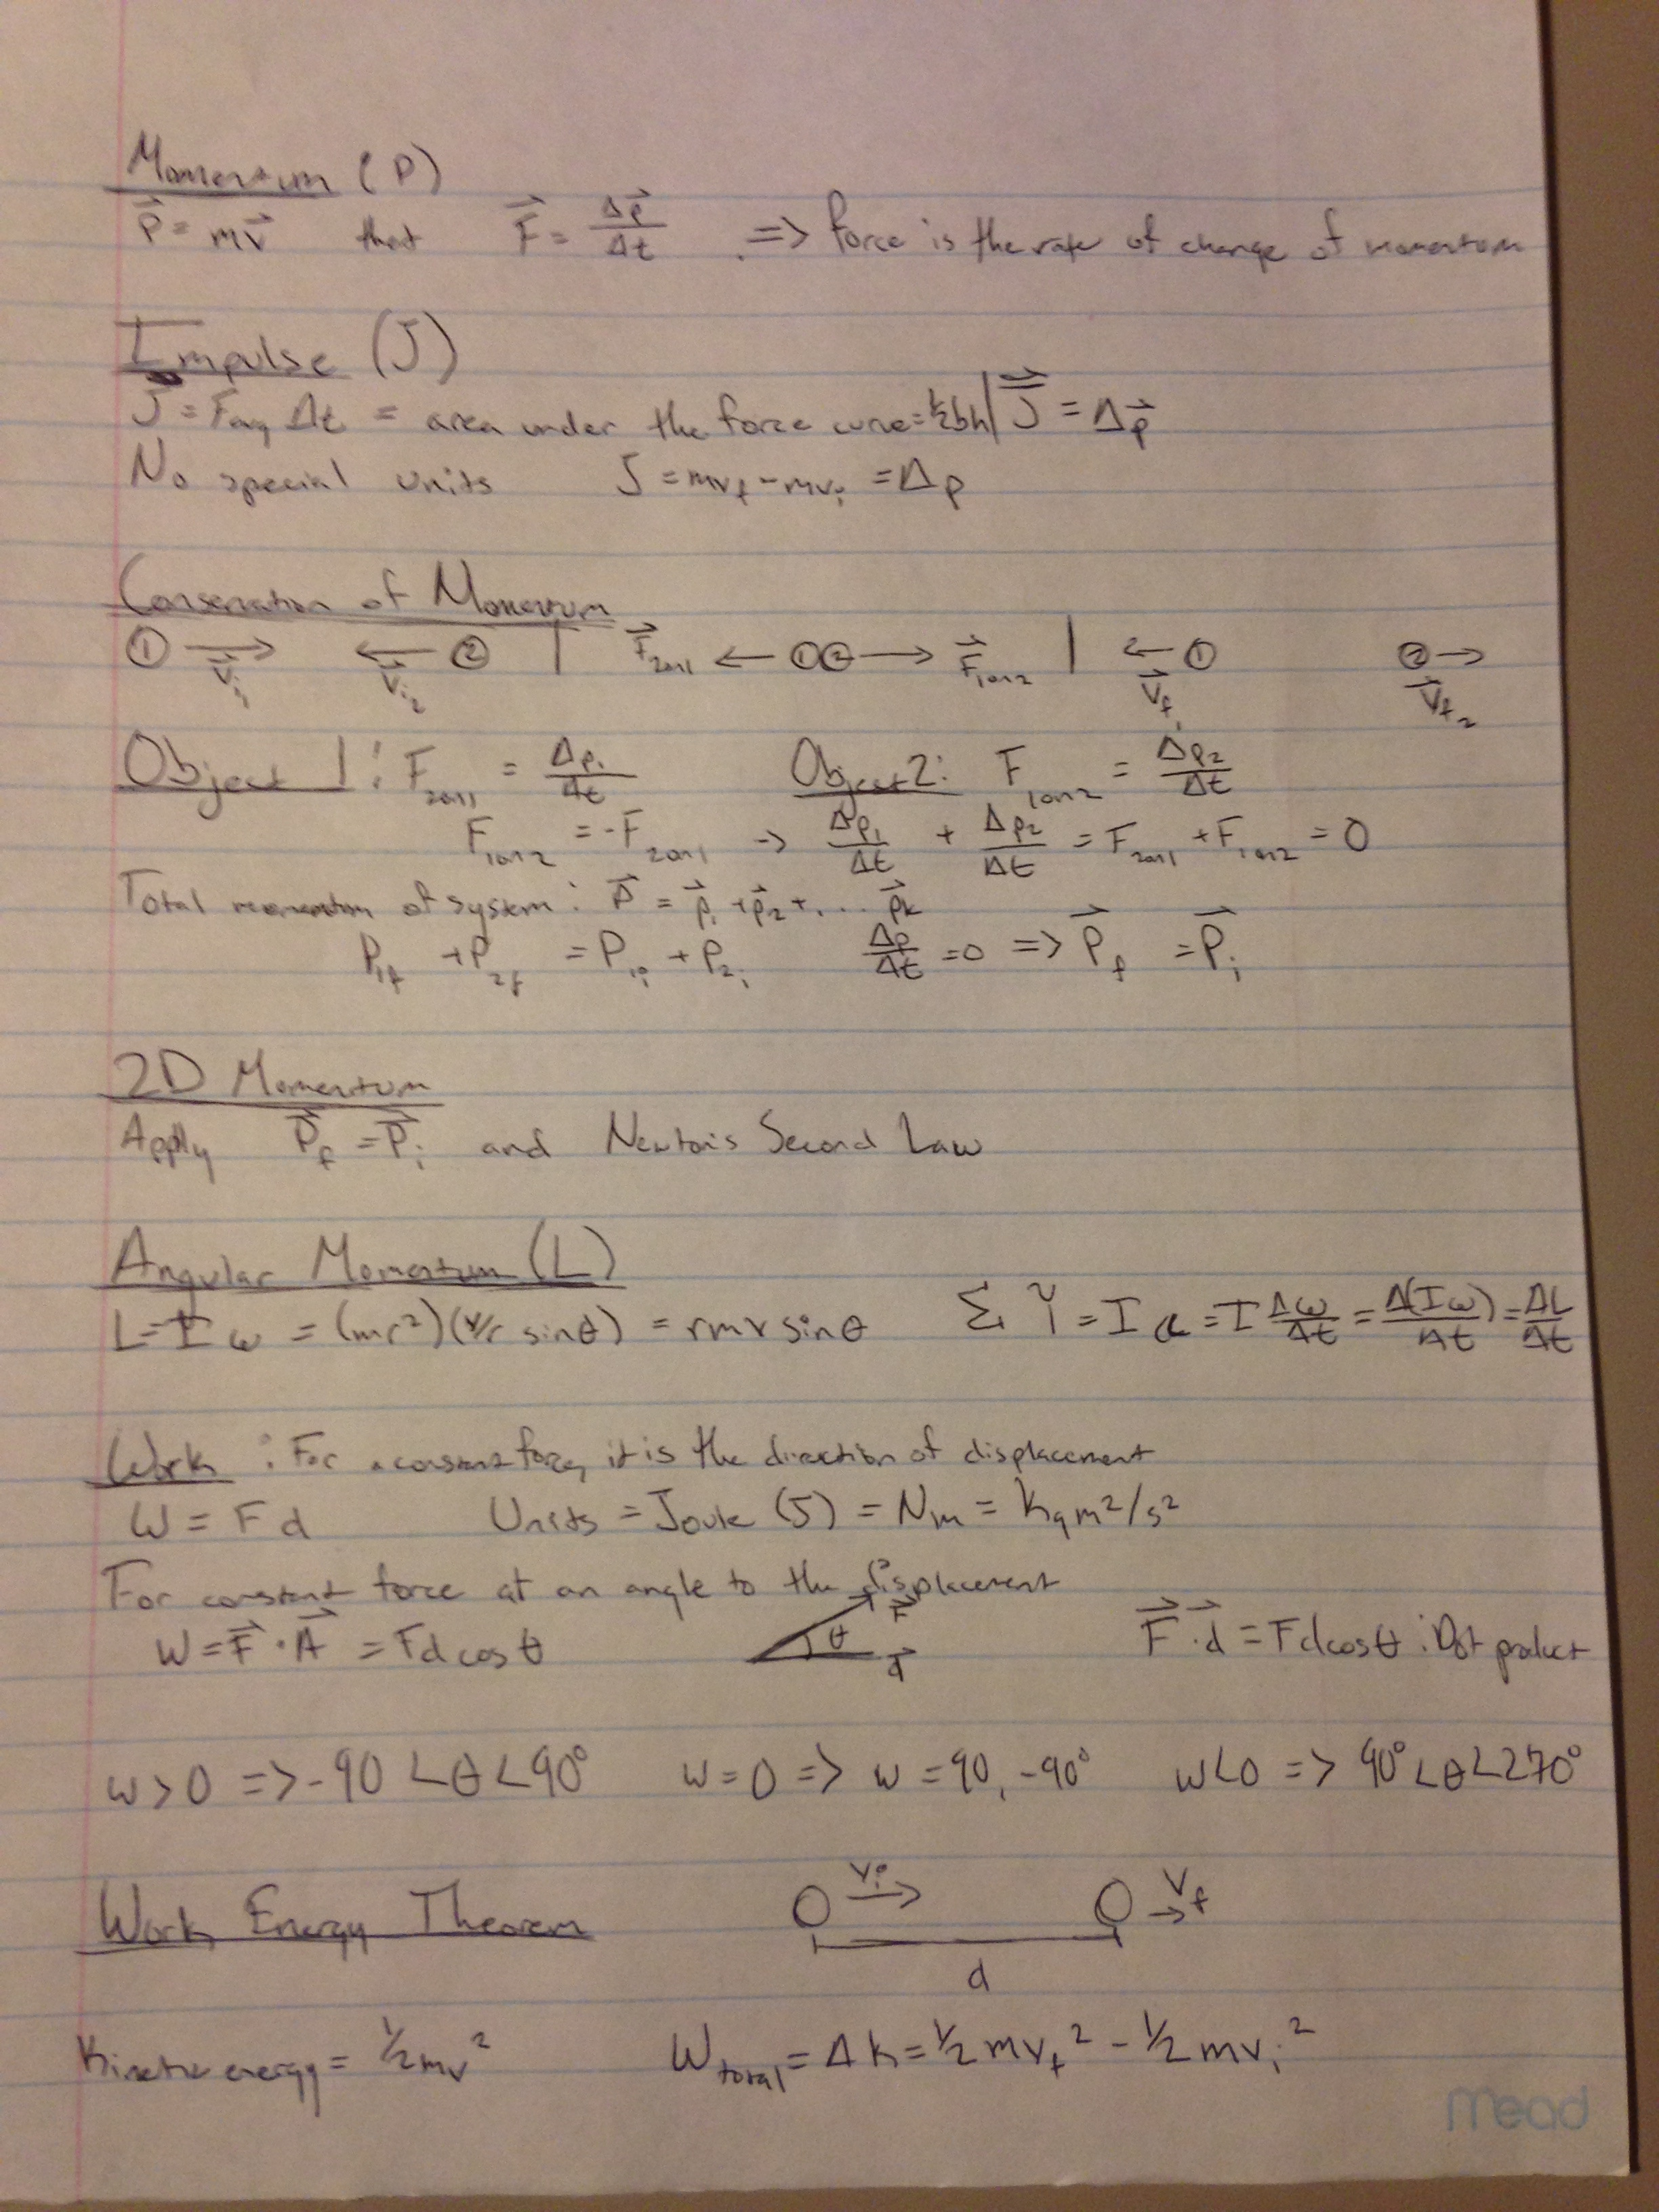 Momentum (P)
p⃗ = mv⃗ that F⃗ = Δp⃗/Δt . => force is the rate of change of momentum
Impulse (J)
J = Favg Δt = area under the force curve = ½bh | J⃗ = Δp⃗
No special units J = mvf - mvi = Δp
Conservation of Momentum
① → v⃗i1 ← v⃗i2 ② | F⃗2on1 ← ①② → F⃗1on2 | ← ① v⃗f1 ② → v⃗f2
Object 1: F2on1 = Δp1/Δt Object 2: F1on2 = Δp2/Δt
F1on2 = -F2on1 → Δp1/Δt + Δp2/Δt = F2on1 + F1on2 = 0
Total momentum of system: P⃗ = p⃗1 + p⃗2 + ... p⃗k
P1f + P2f = P1i + P2i Δp/Δt = 0 => P⃗f = P⃗i
2D Momentum
Apply P⃗f = P⃗i and Newton's Second Law
Angular Momentum (L)
L = Iω = (mr²)(v/r sinθ) = rmv sinθ Σ τ = Iα = I Δω/Δt = Δ(Iω)/Δt = ΔL/Δt
Work : For a constant force, it is the direction of displacement
W = Fd Units = Joule (J) = Nm = Kgm²/s²
For constant force at an angle to the displacement
W = F⃗ · A⃗ = Fdcosθ θ F⃗ d⃗ F⃗ · d⃗ = Fdcosθ : Dot product
w > 0 => -90 < θ < 90° w = 0 => w = 90, -90° w < 0 => 90° < θ < 270°
Work Energy Theorem vi → vf →
d
Kinetic energy = ½mv² Wtotal = ΔK = ½mvf² - ½mvi²
Mead